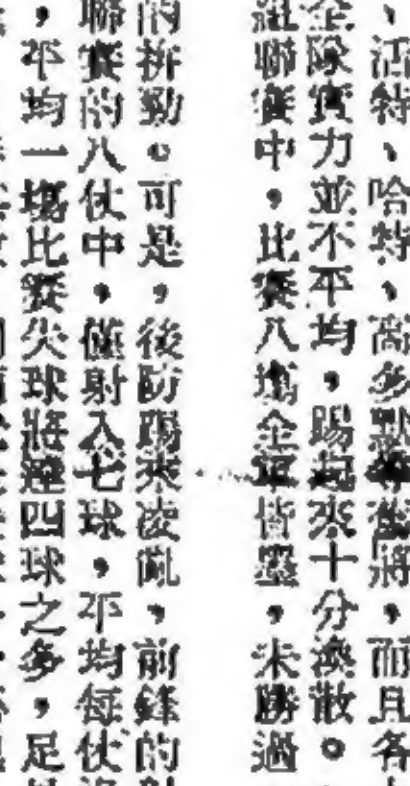 、活特、哈特、高多默等後將，而且各
全隊實力並不平均，踢起來十分渙散。
組聯賽中，比賽八塲全軍皆墨，未勝過
的拚勁。可是，後防踢來凌亂，前鋒的射
聯賽的八仗中，僅射入七球，平均每仗
，平均一塲比賽失球將達四球之多，足